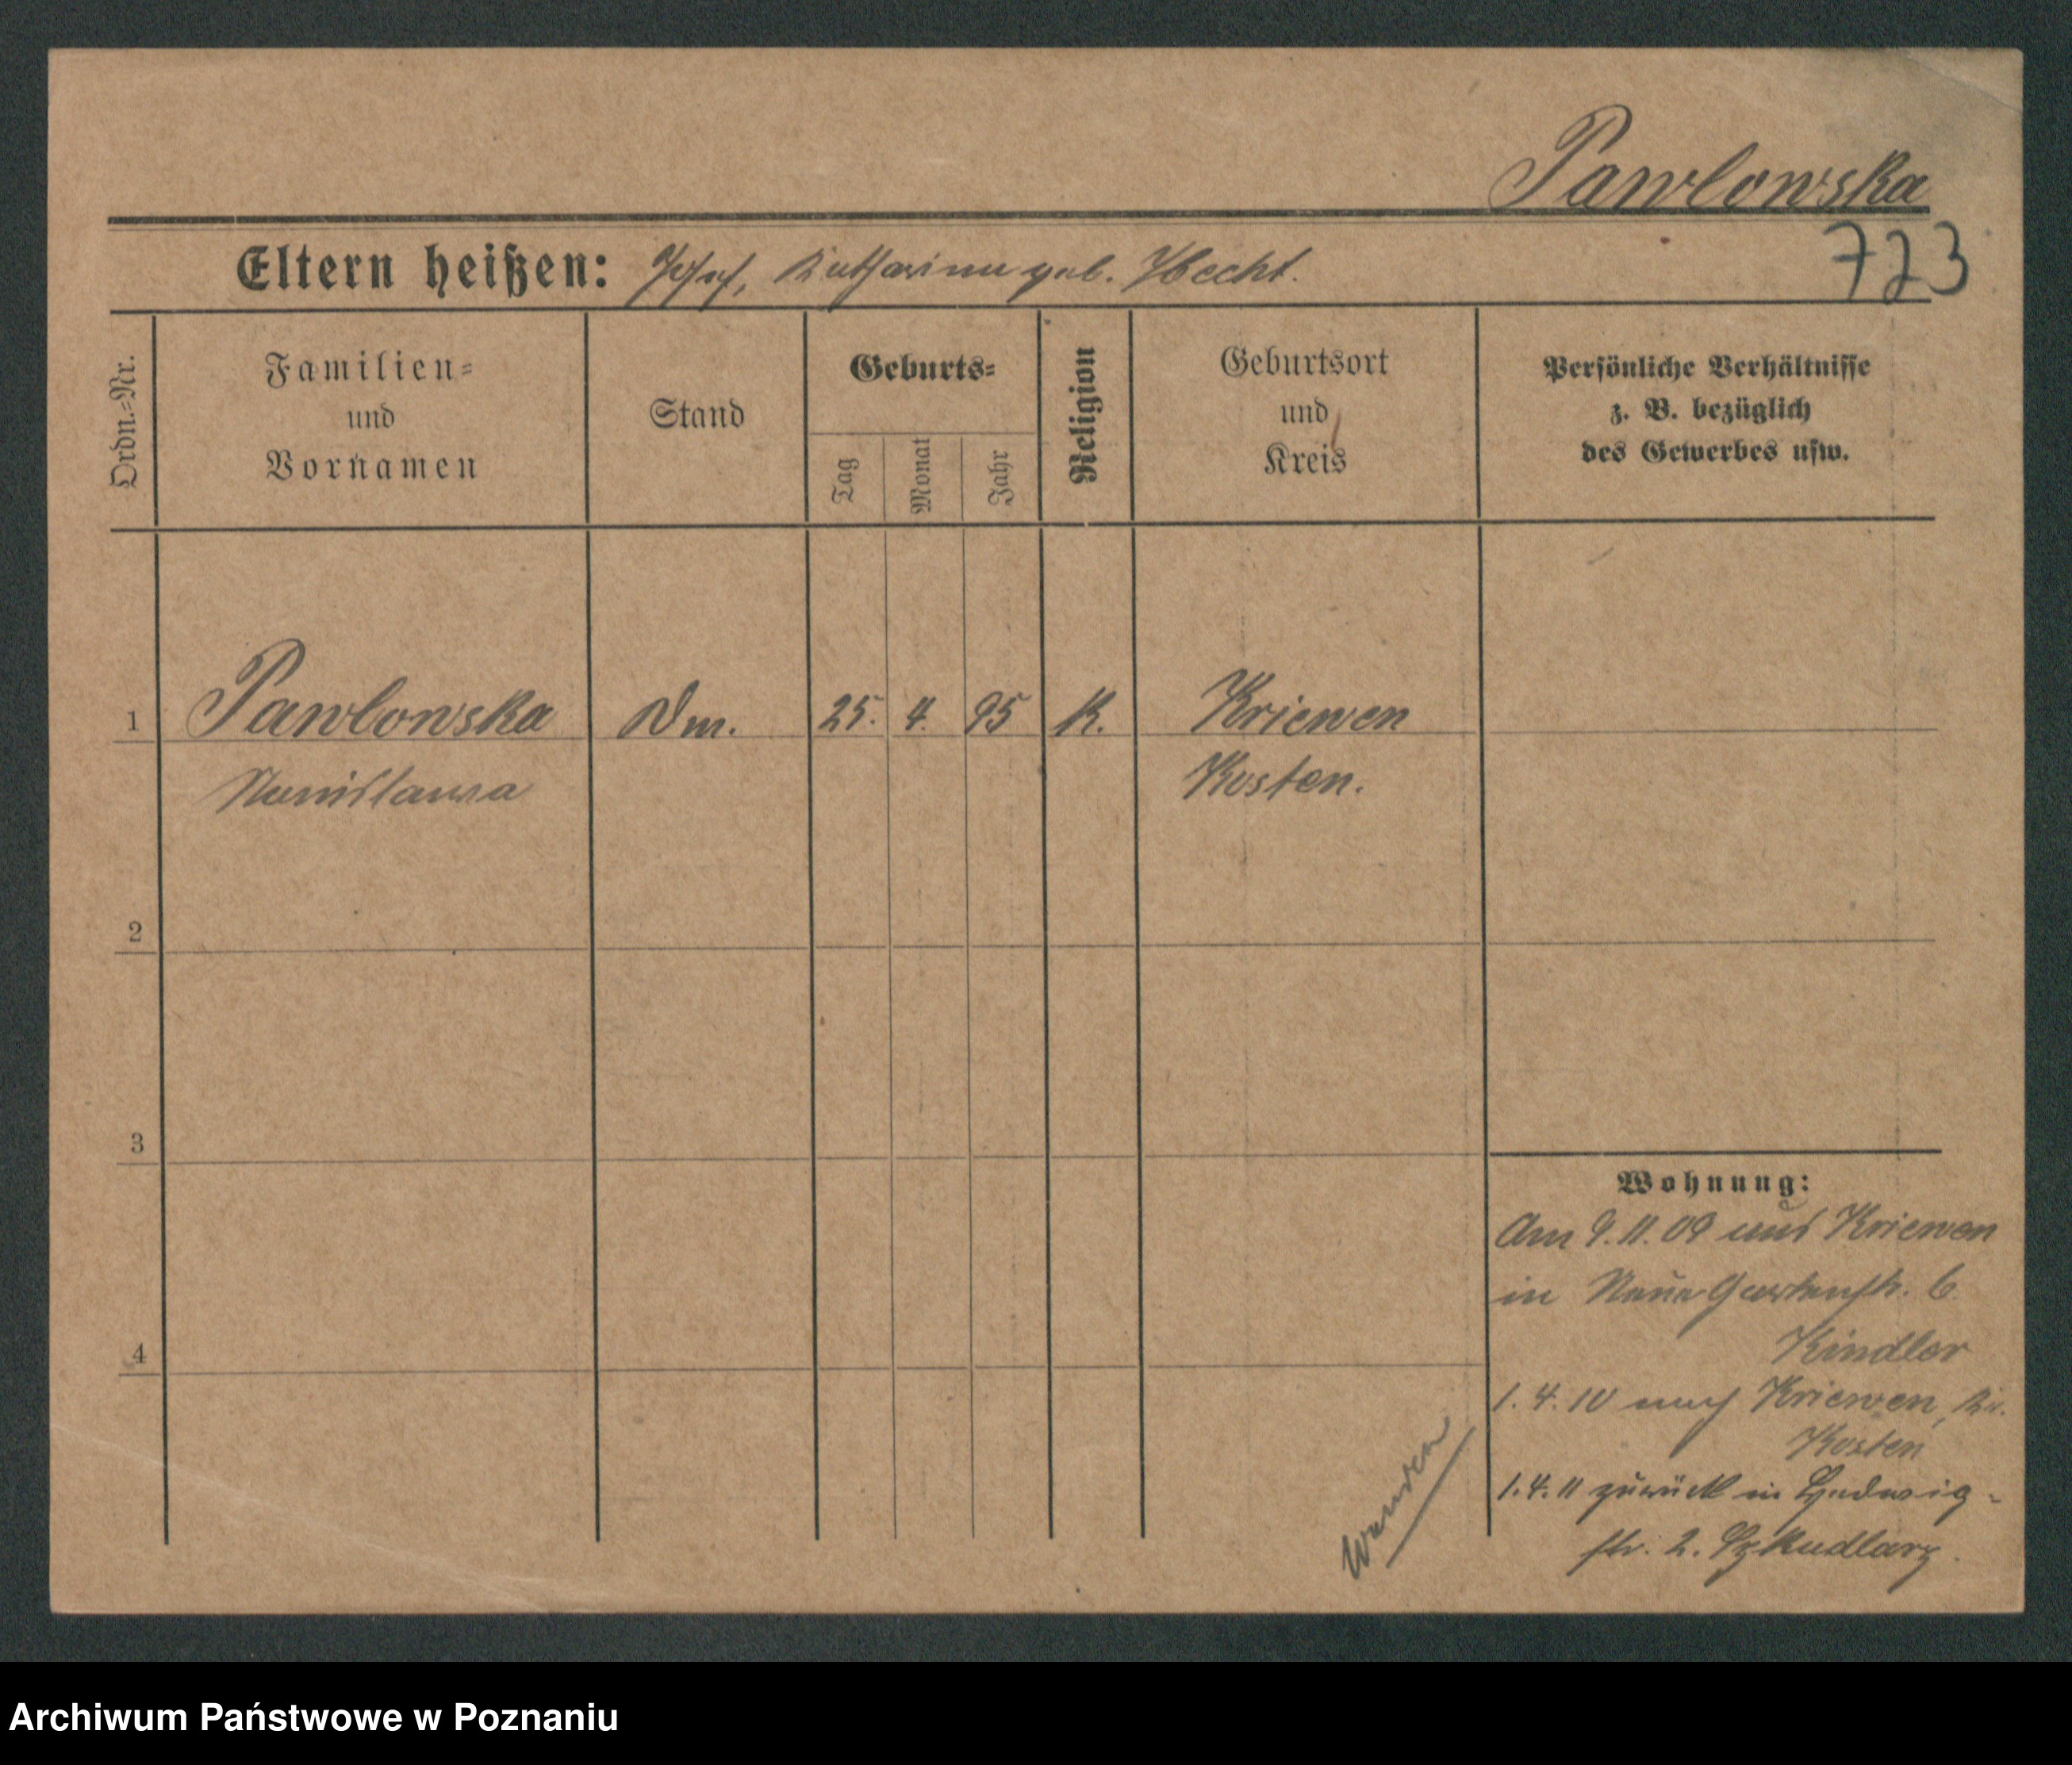 Pawlowska
723
Eltern heißen: Josef, Katharina geb. Hecht.
Ordn.-Nr.
Familien-
und
Vornamen
Stand
Geburts-
Tag
Monat
Jahr
Religion
Geburtsort
und
Kreis
Persönliche Verhältnisse
z. B. bezüglich
des Gewerbes usw.
1 Pawlowska Dm. 25. 4. 95 K. Kriewen
Stanislawa Kosten.
2
3
4
Wohnung:
Am 9.11.09 aus Kriewen
in Neue Gartenstr. 6
Kindler
1. 4. 10 nach Kriewen, Kr.
Kosten
1.4.11 zurück in Ludwig-
str. 2. Szkudlarz.
wenden
Archiwum Państwowe w Poznaniu